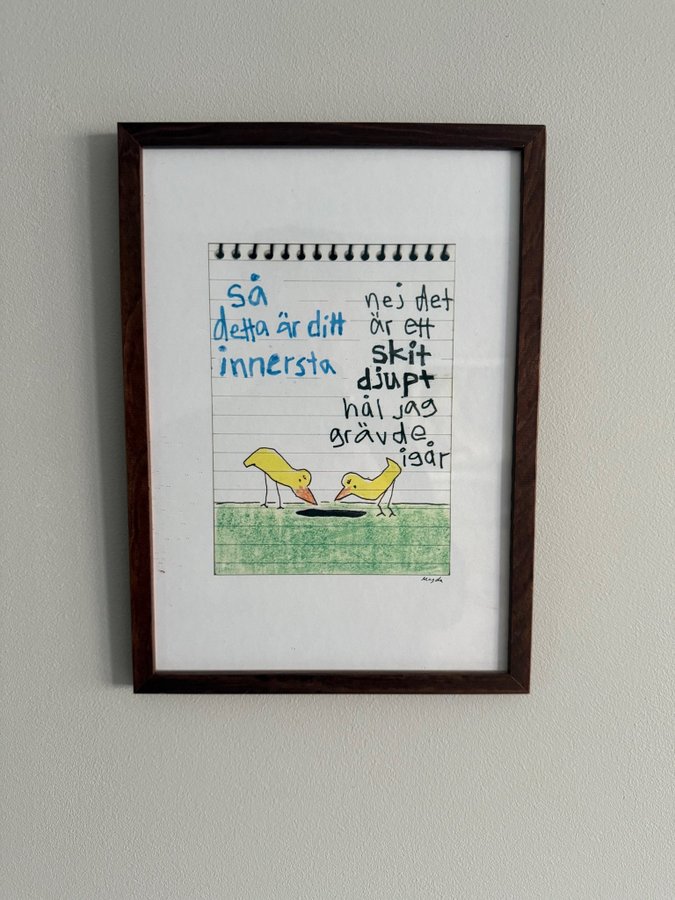 så
detta är ditt
innersta
nej det
är ett
skit
djupt
hål jag
grävde
igår
Magda